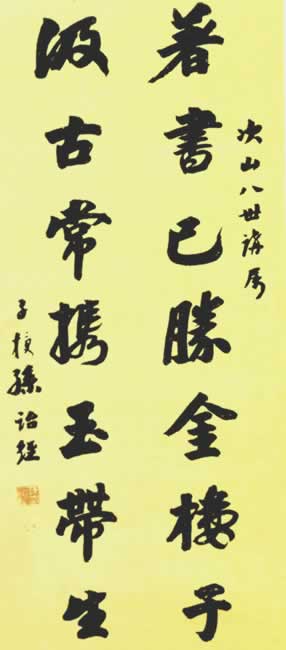 次山八世講屬
著書已勝金樓子
汲古常携玉帶生
子授孫詒經